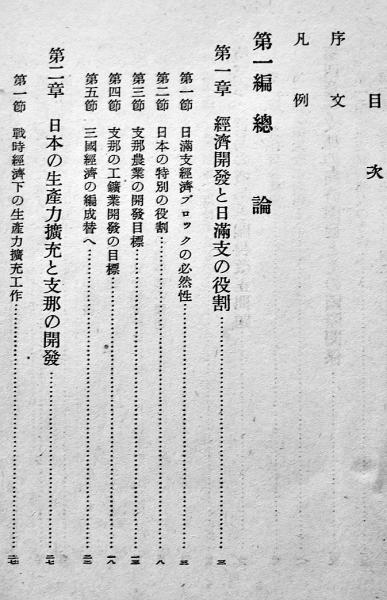 目次
序文
凡例
第一編 總論
第一章 經濟開發と日滿支の役割……三
第一節 日滿支經濟ブロックの必然性……三
第二節 日本の特別の役割……八
第三節 支那農業の開發目標……八
第四節 支那の工鑛業開發の目標……一八
第五節 三國經濟の編成替へ……二三
第二章 日本の生產力擴充と支那の開發……二七
第一節 戰時經濟下の生產力擴充工作……二七